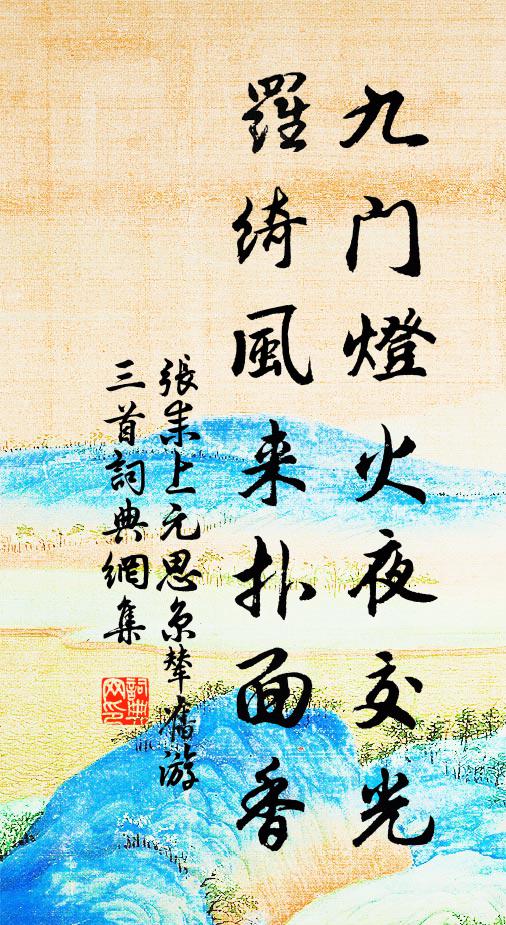 九门燈火夜交光
羅綺風来扑面香
張耒上元思京輦舊游
三首詞典網集
詞典网印